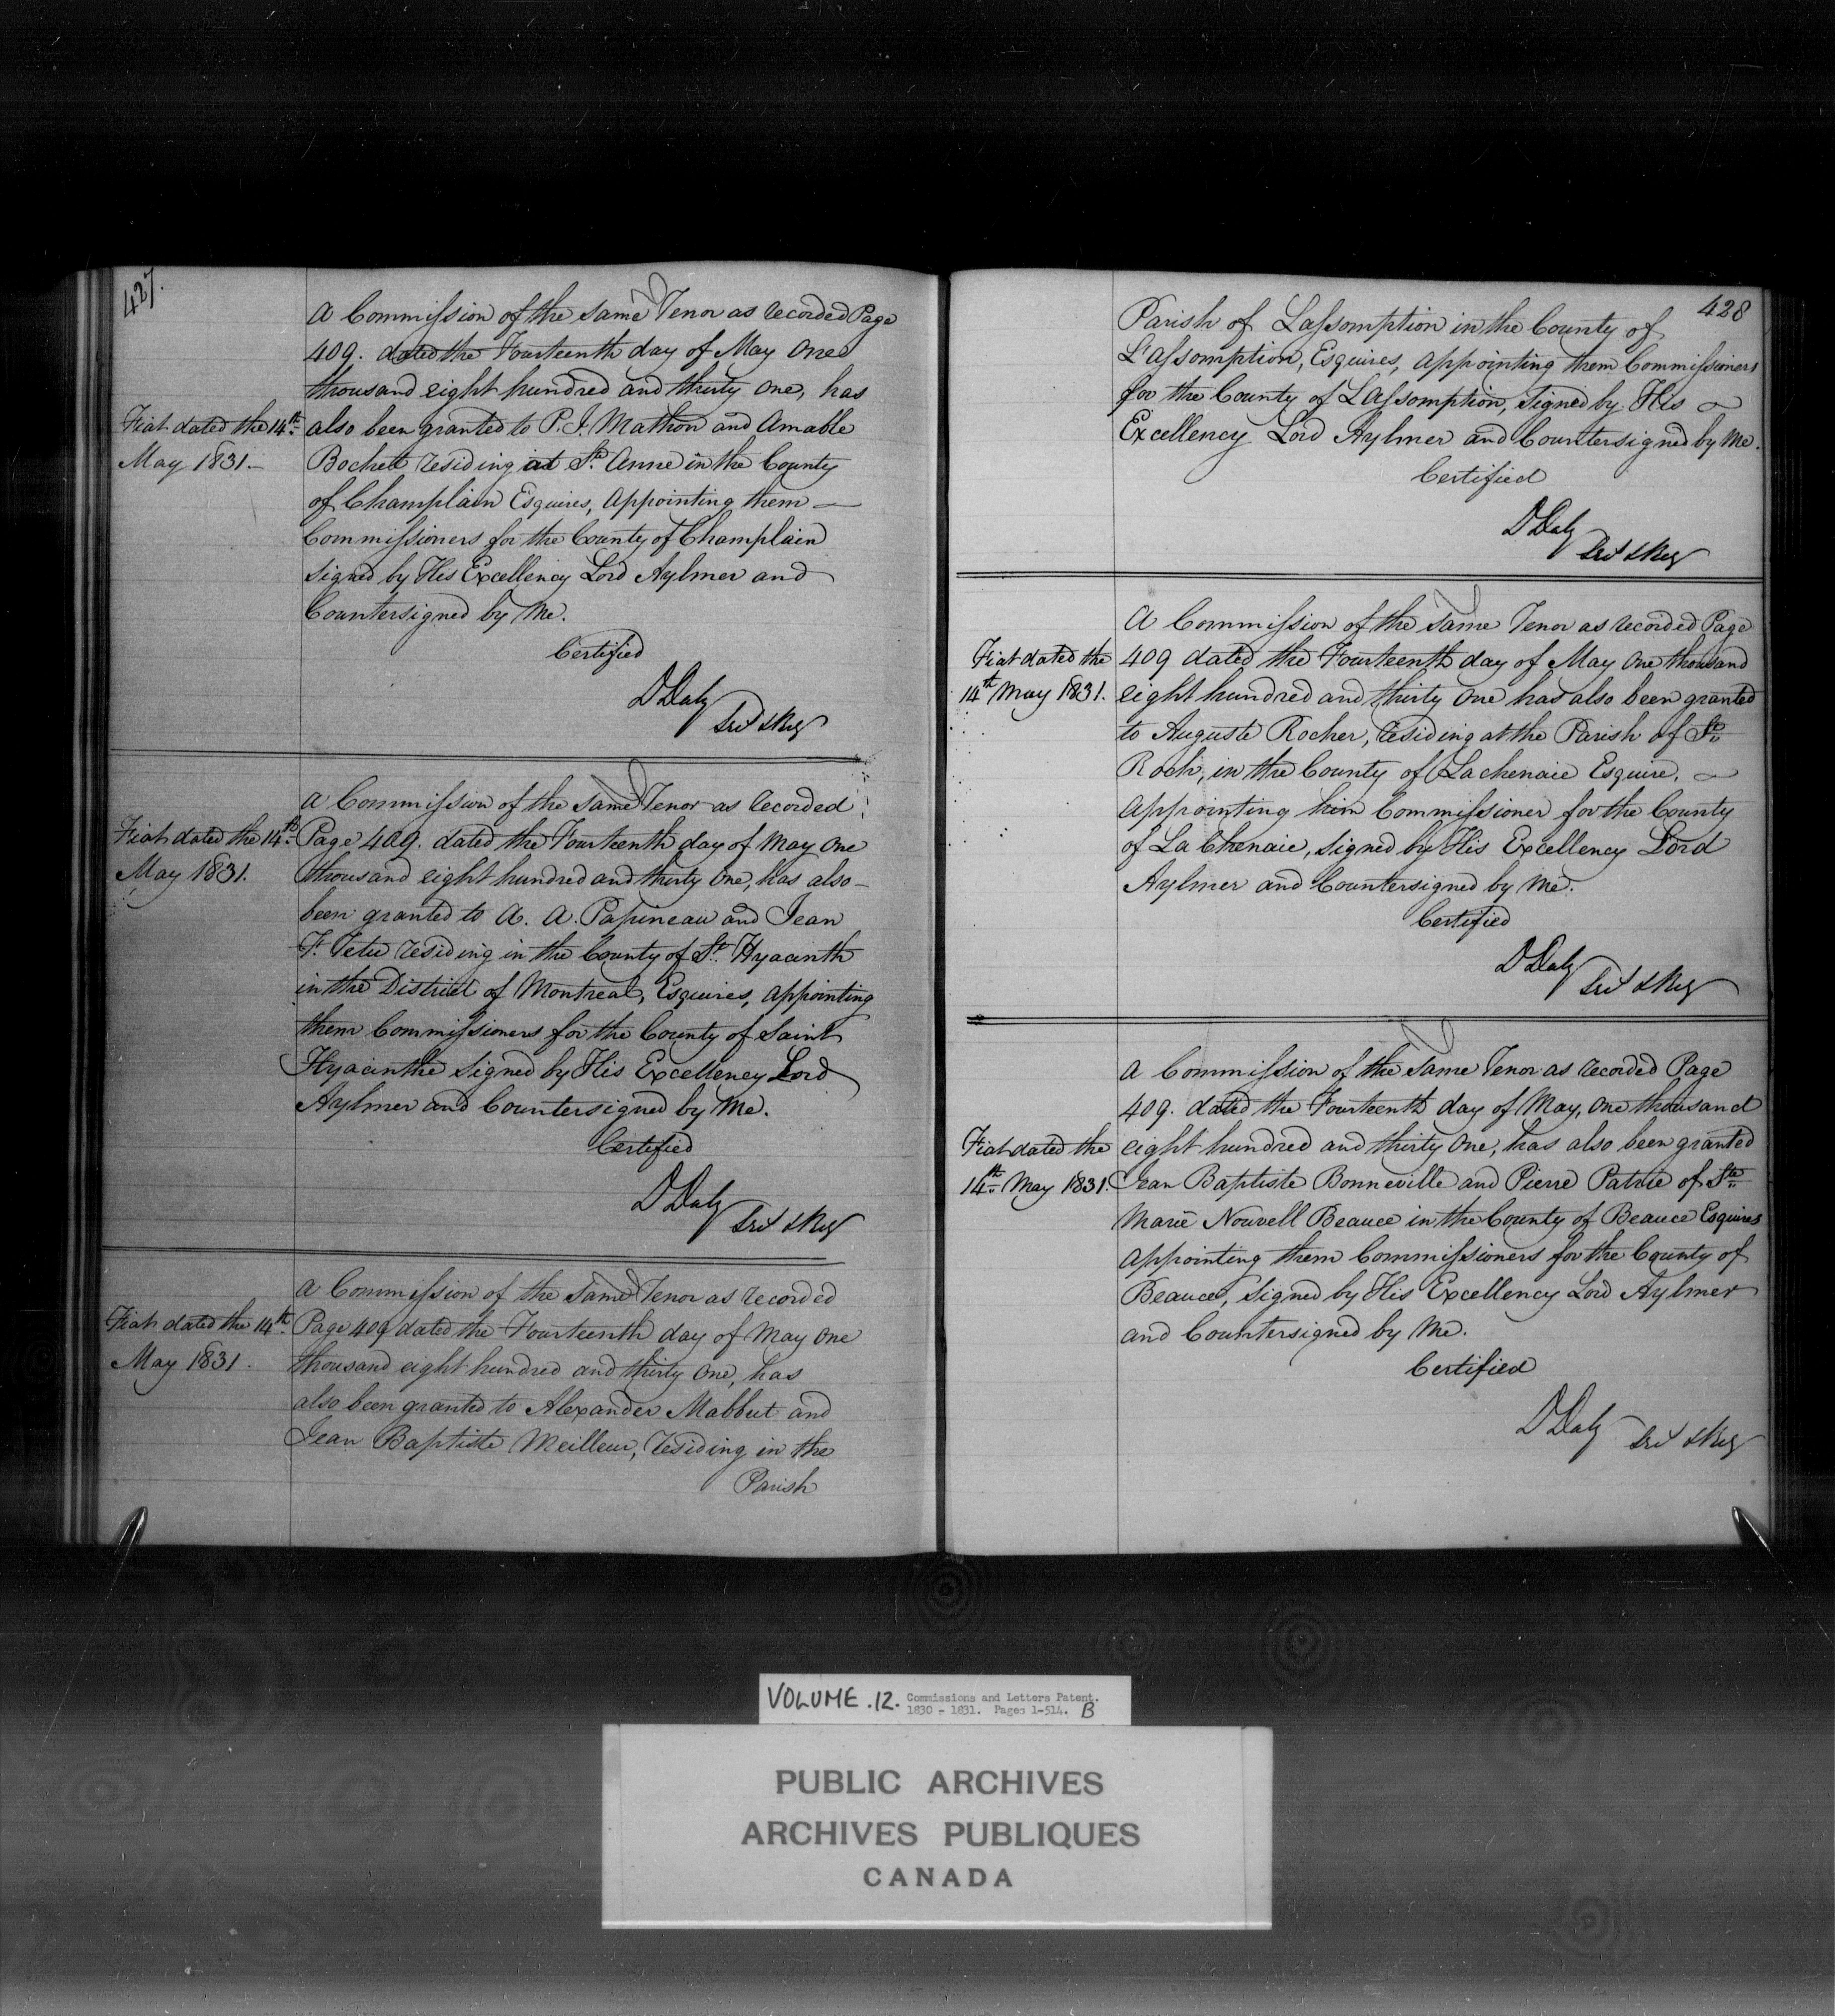 427.
A Commission of the same Tenor as recorded Page
409. dated the Fourteenth day of May One
thousand eight hundred and thirty One, has
Fiat dated the 14th also been granted to P. I. Mathon and Amable
May 1831.— Bochett residing at St. Anne in the County
of Champlain Esquires, Appointing them —
Commissioners for the County of Champlain
Signed by His Excellency Lord Aylmer and
Countersigned by Me.
Certified
D Daly
Secy & Reg
A Commission of the same Tenor as recorded
Fiat dated the 14th Page 409. dated the Fourteenth day of May One
May 1831. thousand eight hundred and thirty One, has also —
been granted to A. A. Papineau and Jean
F. Tetu residing in the County of St. Hyacinth
in the District of Montreal, Esquires, Appointing
them Commissioners for the County of Saint
Hyacinthe Signed by His Excellency Lord
Aylmer and Countersigned by Me.
Certified
D Daly
Secy & Reg
A Commission of the same Tenor as recorded
Fiat dated the 14th Page 409 dated the Fourteenth day of May One
May 1831. thousand eight hundred and thirty One, has
also been granted to Alexander Mabbut and
Jean Baptiste Meilleur, residing in the
Parish
428
Parish of Lassomption in the County of
L'Assomption, Esquires, Appointing them Commissioners
for the County of LAssomption, Signed by His
Excellency Lord Aylmer and Countersigned by Me.
Certified
D Daly
Secy & Reg
A Commission of the same Tenor as recorded Page
Fiat dated the 409 dated the Fourteenth day of May One thousand
14th May 1831. eight hundred and thirty One has also been granted
to Auguste Rocher, residing at the Parish of St.
Roch, in the County of Lachenaie Esquire,
Appointing him Commissioner for the County
of La Chenaie, Signed by His Excellency Lord
Aylmer and Countersigned by Me.
Certified
D Daly
Secy & Reg
A Commission of the same Tenor as recorded Page
409. dated the Fourteenth day of May, One thousand
Fiat dated the eight hundred and thirty One, has also been granted
14th May 1831. Jean Baptiste Bonneville and Pierre Patrie of Ste
Marie Nouvell Beauce in the County of Beauce Esquires
Appointing them Commissioners for the County of
Beauce, Signed by His Excellency Lord Aylmer
and Countersigned by Me.
Certified
D Daly Secy & Reg
VOLUME .12. Commissions and Letters Patent.
1830 - 1831. Pages 1-514. B
PUBLIC ARCHIVES
ARCHIVES PUBLIQUES
CANADA